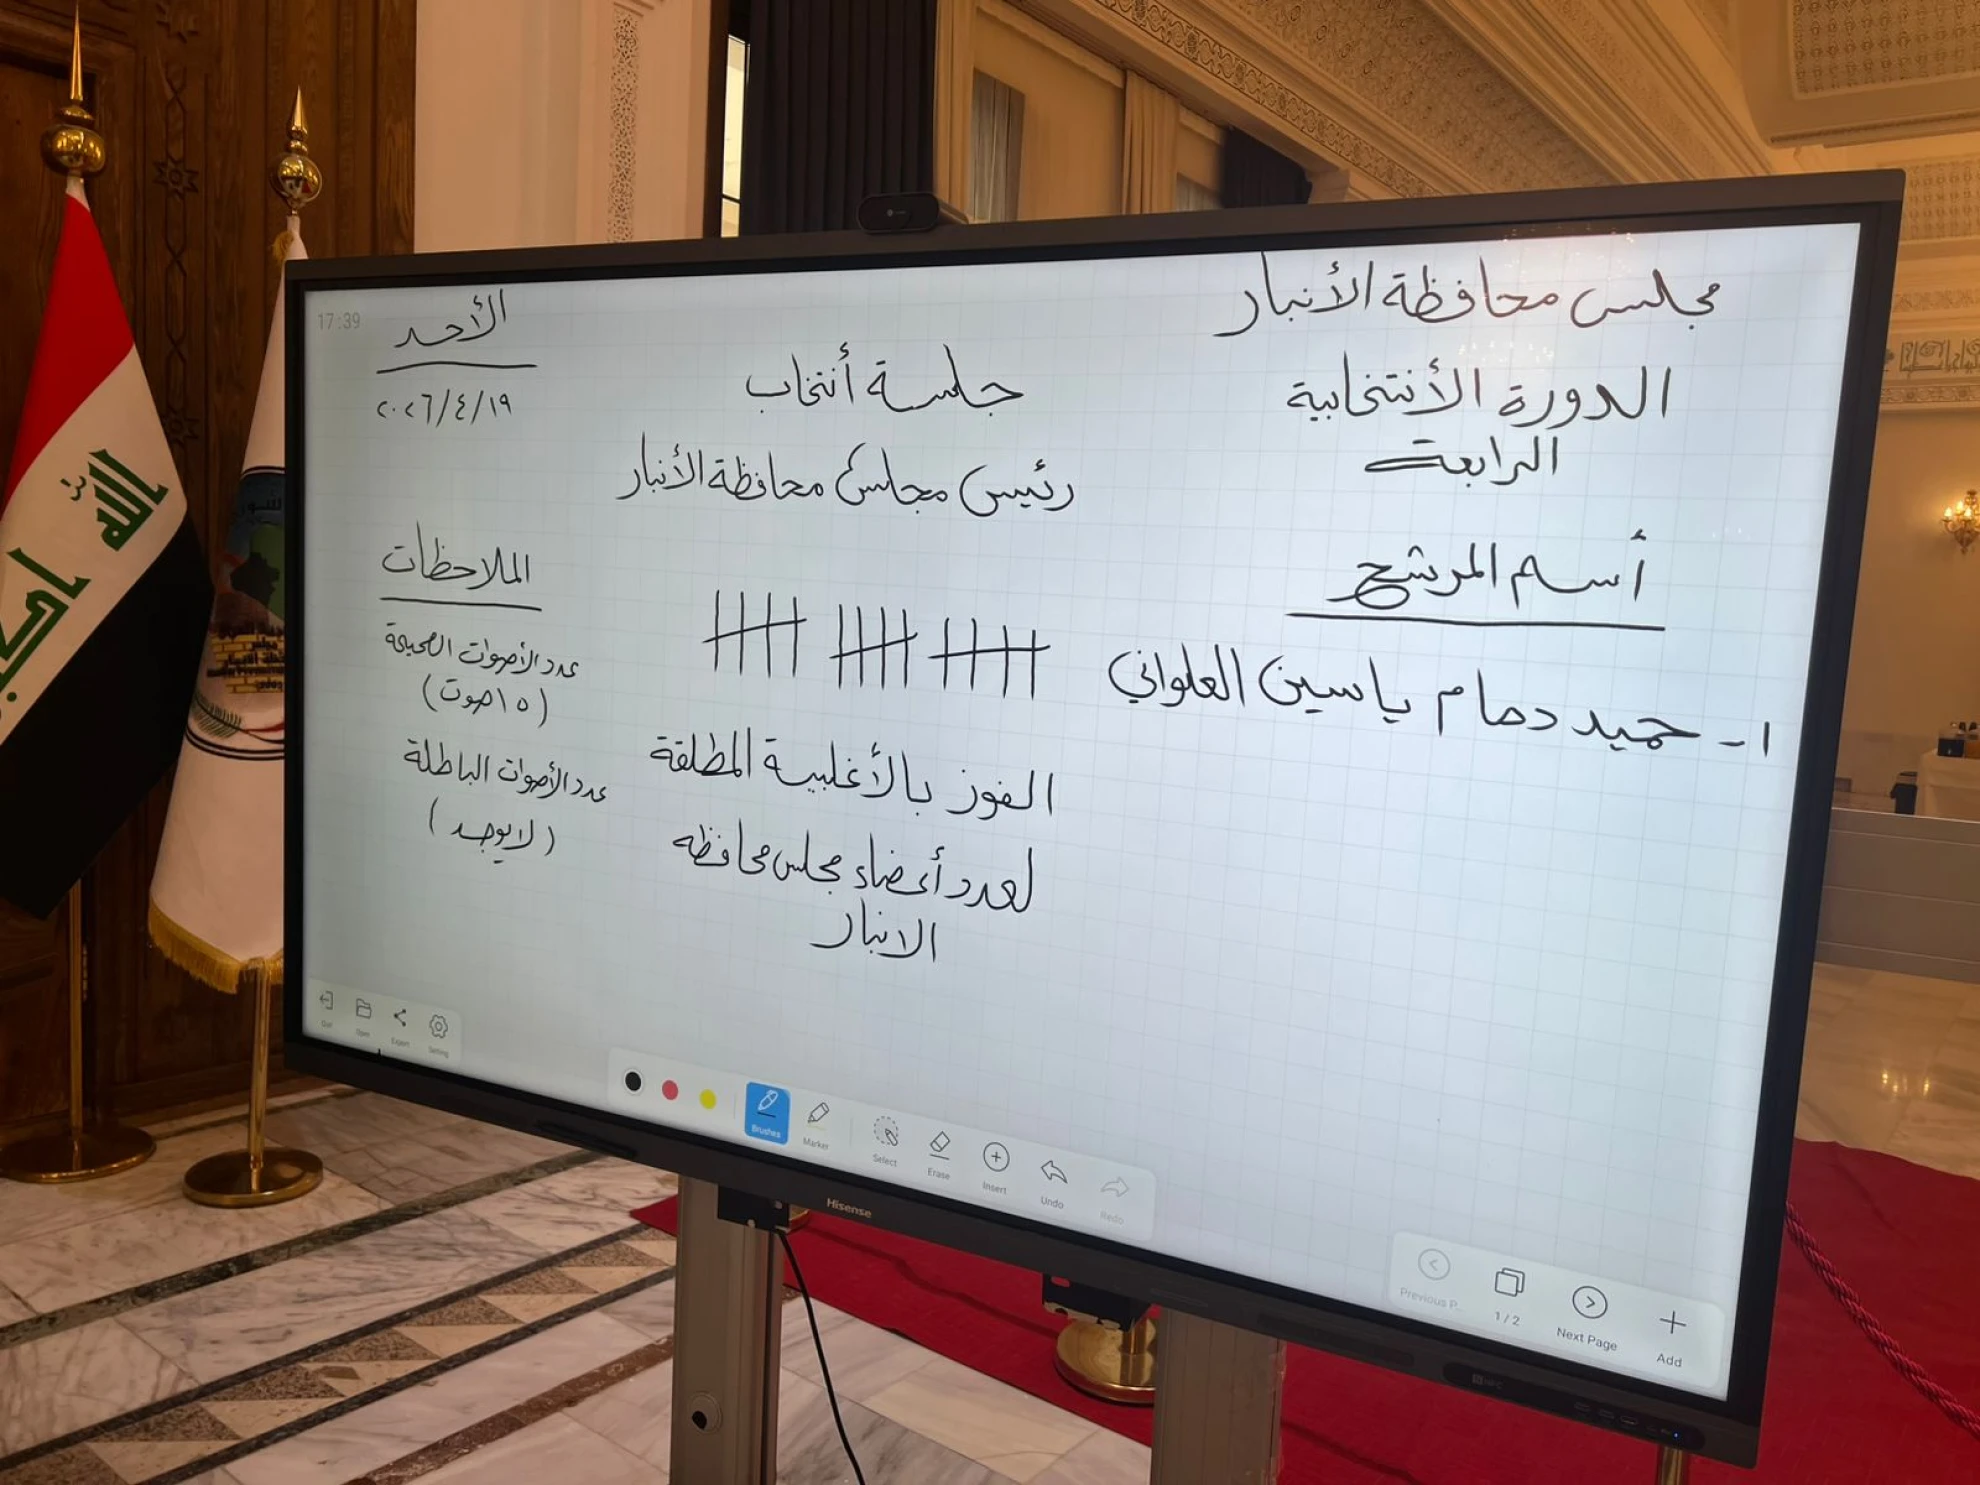 مجلس محافظة الأنبار
الدورة الأنتخابية
الرابعة
جلسة أنتخاب
رئيس مجلس محافظة الأنبار
17:39
الأحد
٢٠٢٦/٤/١٩
أسم المرشح
١- حميد دهام ياسين العلواني
الفوز بالأغلبية المطلقة
لعدد أعضاء مجلس محافظه
الانبار
الملاحظات
عدد الأصوات الصحيحة
(١٥ صوت)
عدد الأصوات الباطلة
(لا يوجد)
الله اكبر
Exit Open Export Setting
Brushes Marker Select Erase Insert Undo Redo
Previous P... 1/2 Next Page Add
Hisense